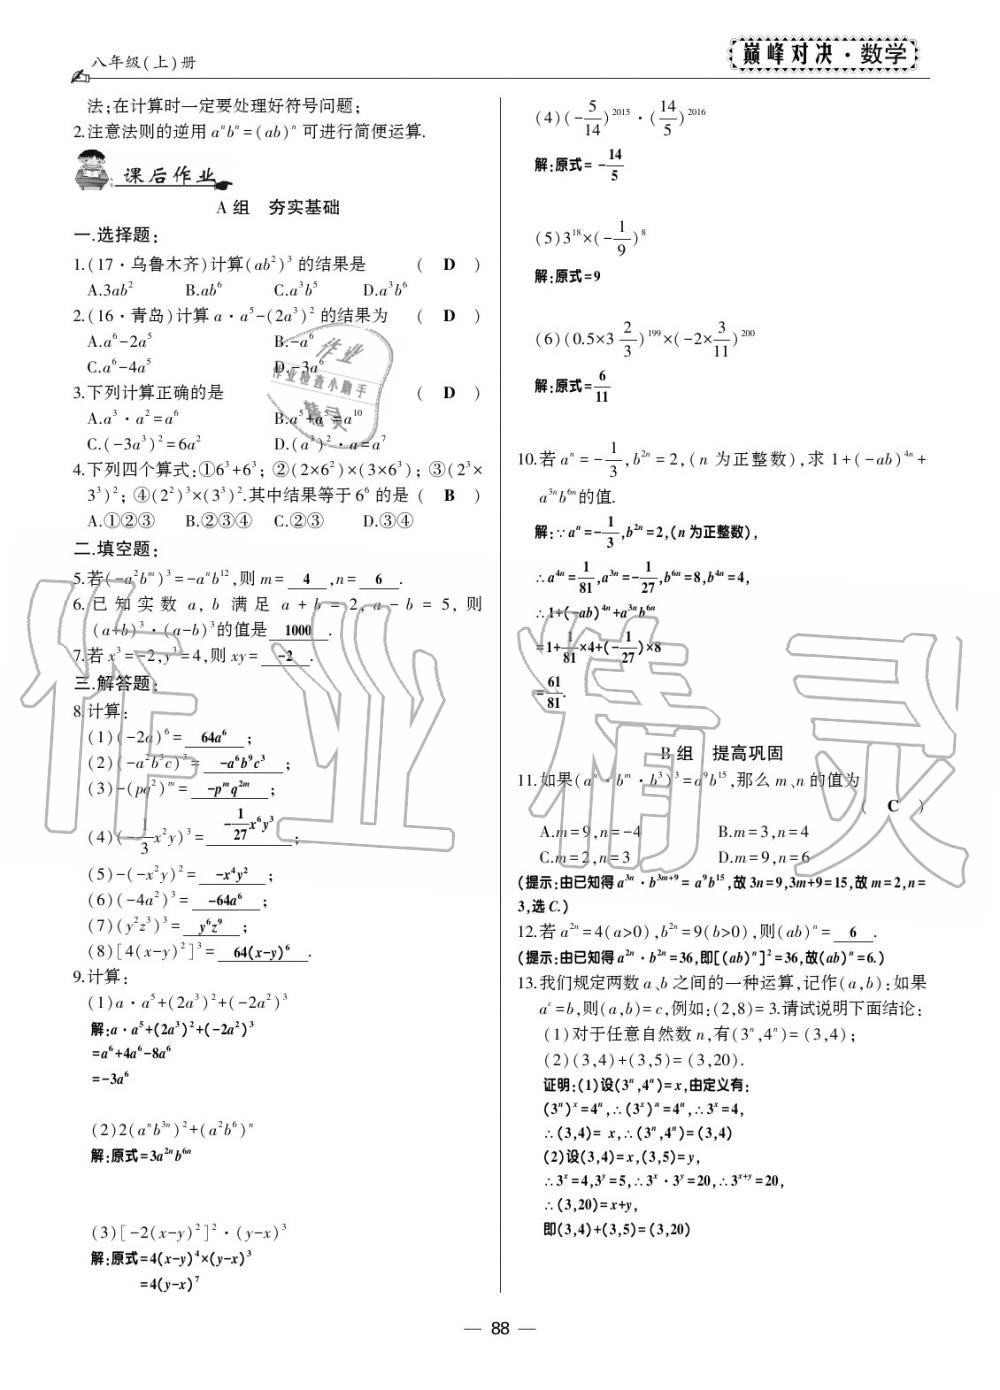 八年级(上)册
巅峰对决·数学
法;在计算时一定要处理好符号问题;
2.注意法则的逆用 aⁿbⁿ=(ab)ⁿ 可进行简便运算.
课后作业
A 组　夯实基础
一.选择题:
1.(17·乌鲁木齐)计算(ab²)³ 的结果是 ( D )
A.3ab² B.ab⁶ C.a³b⁵ D.a³b⁶
2.(16·青岛)计算 a·a⁵-(2a³)² 的结果为 ( D )
A.a⁶-2a⁵ B.-a⁶
C.a⁶-4a⁵ D.-3a⁶
3.下列计算正确的是 ( D )
A.a³·a²=a⁶ B.a⁵+a⁵=a¹⁰
C.(-3a³)²=6a² D.(a³)²·a=a⁷
4.下列四个算式:①6³+6³; ②(2×6²)×(3×6³); ③(2³×
3³)²; ④(2²)³×(3³)².其中结果等于 6⁶ 的是 ( B )
A.①②③ B.②③④ C.②③ D.③④
二.填空题:
5.若(-a²bᵐ)³=-aⁿb¹²,则 m= 4 ,n= 6 .
6.已知实数 a, b 满足 a+b=2, a-b=5, 则
(a+b)³·(a-b)³的值是 1000 .
7.若 x³=-2,y³=4,则 xy= -2 .
三.解答题:
8.计算:
(1)(-2a)⁶= 64a⁶ ;
(2)(-a²b³c)³= -a⁶b⁹c³ ;
(3)-(pq²)ᵐ= -pᵐq²ᵐ ;
(4)(-1/3x²y)³= -1/27x⁶y³ ;
(5)-(-x²y)²= -x⁴y² ;
(6)(-4a²)³= -64a⁶ ;
(7)(y²z³)³= y⁶z⁹ ;
(8)[4(x-y)²]³= 64(x-y)⁶ .
9.计算:
(1)a·a⁵+(2a³)²+(-2a²)³
解:a·a⁵+(2a³)²+(-2a²)³
=a⁶+4a⁶-8a⁶
=-3a⁶
(2)2(aⁿb³ⁿ)²+(a²b⁶)ⁿ
解:原式=3a²ⁿb⁶ⁿ
(3)[-2(x-y)²]²·(y-x)³
解:原式=4(x-y)⁴×(y-x)³
=4(y-x)⁷
(4)(-5/14)²⁰¹⁵·(14/5)²⁰¹⁶
解:原式= -14/5
(5)3¹⁸×(-1/9)⁸
解:原式=9
(6)(0.5×3 2/3)¹⁹⁹×(-2×3/11)²⁰⁰
解:原式=6/11
10.若 aⁿ=-1/3,b²ⁿ=2,(n 为正整数),求 1+(-ab)⁴ⁿ+
a³ⁿb⁶ⁿ的值.
解:∵aⁿ=-1/3,b²ⁿ=2,(n 为正整数),
∴a⁴ⁿ=1/81,a³ⁿ=-1/27,b⁶ⁿ=8,b⁴ⁿ=4,
∴1+(-ab)⁴ⁿ+a³ⁿb⁶ⁿ
=1+1/81×4+(-1/27)×8
=61/81.
B 组　提高巩固
11.如果(aⁿ·bᵐ·b³)³=a⁹b¹⁵,那么 m、n 的值为
( C )
A.m=9,n=-4 B.m=3,n=4
C.m=2,n=3 D.m=9,n=6
(提示:由已知得 a³ⁿ·b³ᵐ⁺⁹= a⁹b¹⁵,故 3n=9,3m+9=15,故 m=2,n=
3,选 C.)
12.若 a²ⁿ=4(a>0),b²ⁿ=9(b>0),则(ab)ⁿ= 6 .
(提示:由已知得 a²ⁿ·b²ⁿ=36,即[(ab)ⁿ]²=36,故(ab)ⁿ=6.)
13.我们规定两数 a、b 之间的一种运算,记作(a,b):如果
aᶜ=b,则(a,b)=c,例如:(2,8)=3.请试说明下面结论:
(1)对于任意自然数 n,有(3ⁿ,4ⁿ)=(3,4);
(2)(3,4)+(3,5)=(3,20).
证明:(1)设(3ⁿ,4ⁿ)=x,由定义有:
(3ⁿ)ˣ=4ⁿ,∴(3ˣ)ⁿ=4ⁿ,∴3ˣ=4,
∴(3,4)= x,∴(3ⁿ,4ⁿ)=(3,4)
(2)设(3,4)=x,(3,5)=y,
∴3ˣ=4,3ʸ=5,∴3ˣ·3ʸ=20,∴3ˣ⁺ʸ=20,
∴(3,20)=x+y,
即(3,4)+(3,5)=(3,20)
— 88 —
作业
作业检查小助手
精灵
作业精灵